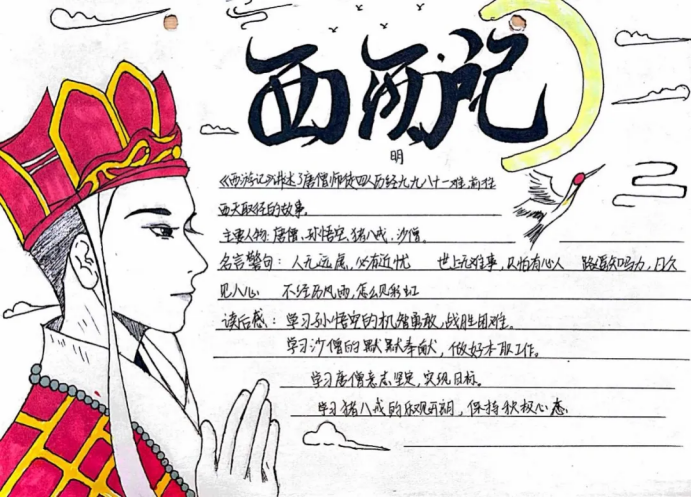 西游记
明
《西游记》讲述了唐僧师徒四人历经九九八十一难前往
西天取经的故事。
主要人物:唐僧、孙悟空、猪八戒、沙僧。
名言警句:人无远虑,必有近忧 世上无难事,只怕有心人 路遥知马力,日久
见人心 不经历风雨,怎么见彩虹
读后感:学习孙悟空的机智勇敢,战胜困难。
学习沙僧的默默奉献,做好本职工作。
学习唐僧意志坚定,实现目标。
学习猪八戒的乐观开朗,保持积极心态